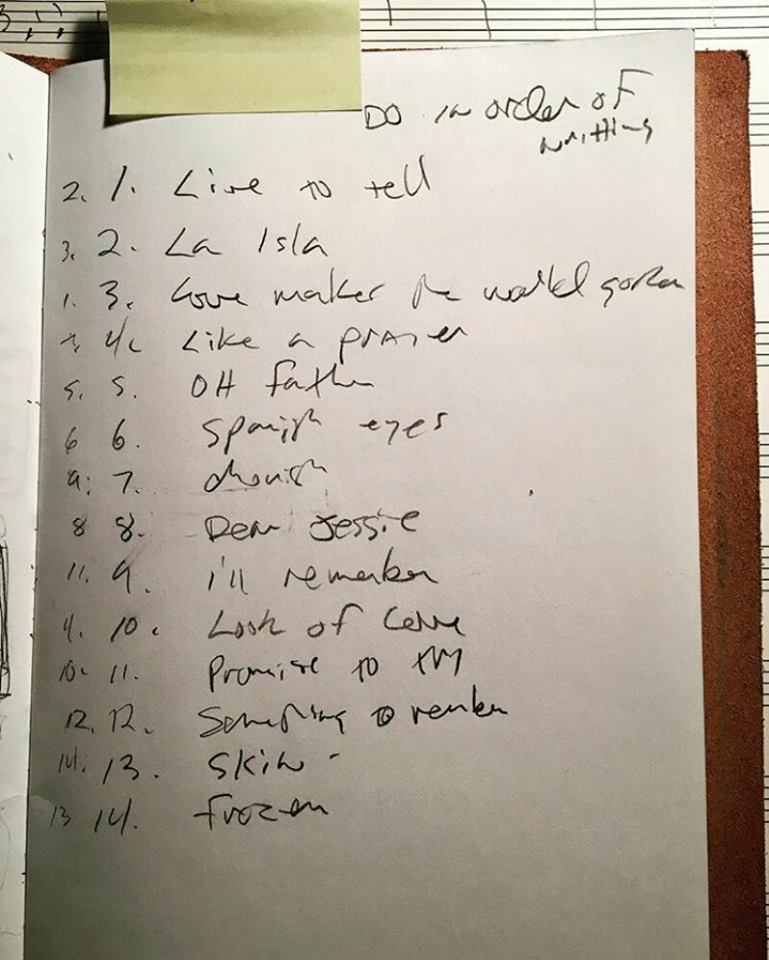 DO in order of
writting
2. 1. Live to tell
3. 2. La Isla
1. 3. Love makes the world go
7. 4. Like a prayer
5. 5. OH father
6 6. Spanish eyes
9. 7. cherish
8 8. Dear Jessie
11. 9. i'll remember
4. 10. Look of Love
10. 11. Promise to try
12. 12. Something to remember
14. 13. Skin -
13 14. frozen